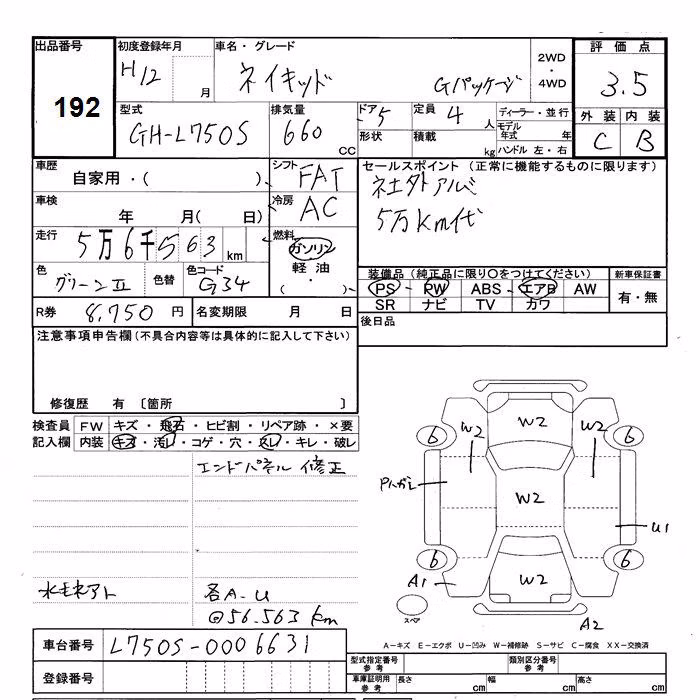 出品番号 初度登録年月 車名・グレード 評価点
192
H12 月 ネイキッド Gパッケージ 2WD・4WD 3.5
型式 排気量 ドア 5 定員 4 人 ディーラー・並行 外装 内装
GH-L750S 660 CC 形状 積載 kg モデル年式 年 ハンドル 左・右 C B
車歴 シフト FAT セールスポイント (正常に機能するものに限ります)
自家用・( )
車検 冷房 AC 社外アルミ
年 月( 日) 5万km代
走行 5万6千563 km 燃料 ガソリン
軽油・( )
色 グリーンII 色替 色コード G34
装備品 (純正品に限り○をつけてください) 新車保証書
PS PW ABS エアB AW 有・無
SR ナビ TV カワ
R券 8,750 円 名変期限 月 日 後日品
注意事項申告欄(不具合内容等は具体的に記入して下さい)
修復歴 有 〔箇所 〕
検査員 FW キズ・飛石・ヒビ割・リペア跡・×要
記入欄 内装 キズ・汚レ・コゲ・穴・スレ・キレ・破レ
エンドパネル 修正
6 W2 W2 W2 6
Pハガレ W2 U1
6 W2 6
A1
スペア
A2
各A-U
@56.563 km
車台番号 L750S-0006631
A-キズ E-エクボ U-凹み W-補修跡 S-サビ C-腐食 XX-交換済
登録番号
型式指定番号 参考 類別区分番号 参考
車庫証明用 参考 長さ cm 幅 cm 高さ cm